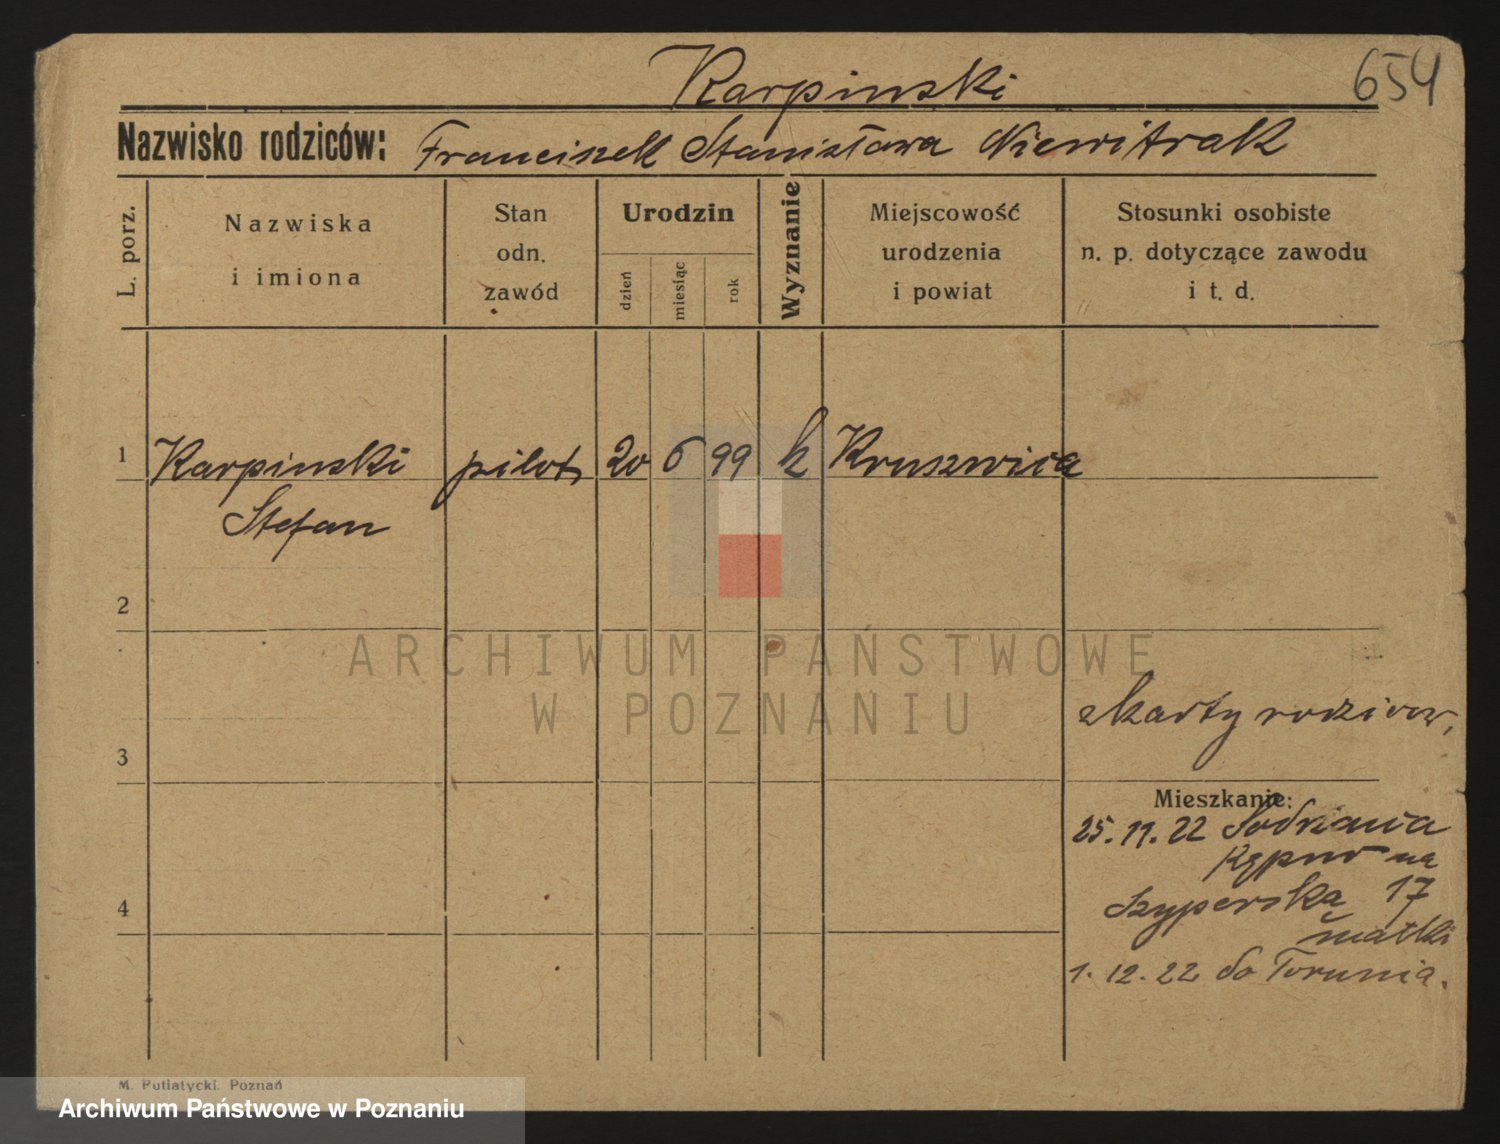 Karpinski
654
Nazwisko rodziców: Franciszek Stanisława Niewitrak
L. porz.
Nazwiska
i imiona
Stan
odn.
zawód
Urodzin
dzień
miesiąc
rok
Wyznanie
Miejscowość
urodzenia
i powiat
Stosunki osobiste
n. p. dotyczące zawodu
i t. d.
1 Karpinski pilot 20 6 99 k Kruszwica
Stefan
2
ARCHIWUM PAŃSTWOWE
W POZNANIU
z karty rodzicow,
3
Mieszkanie:
25.11.22
na
Szyperska 17
matki
4
1.12.22 do Torunia.
M. Putiatycki. Poznań
Archiwum Państwowe w Poznaniu